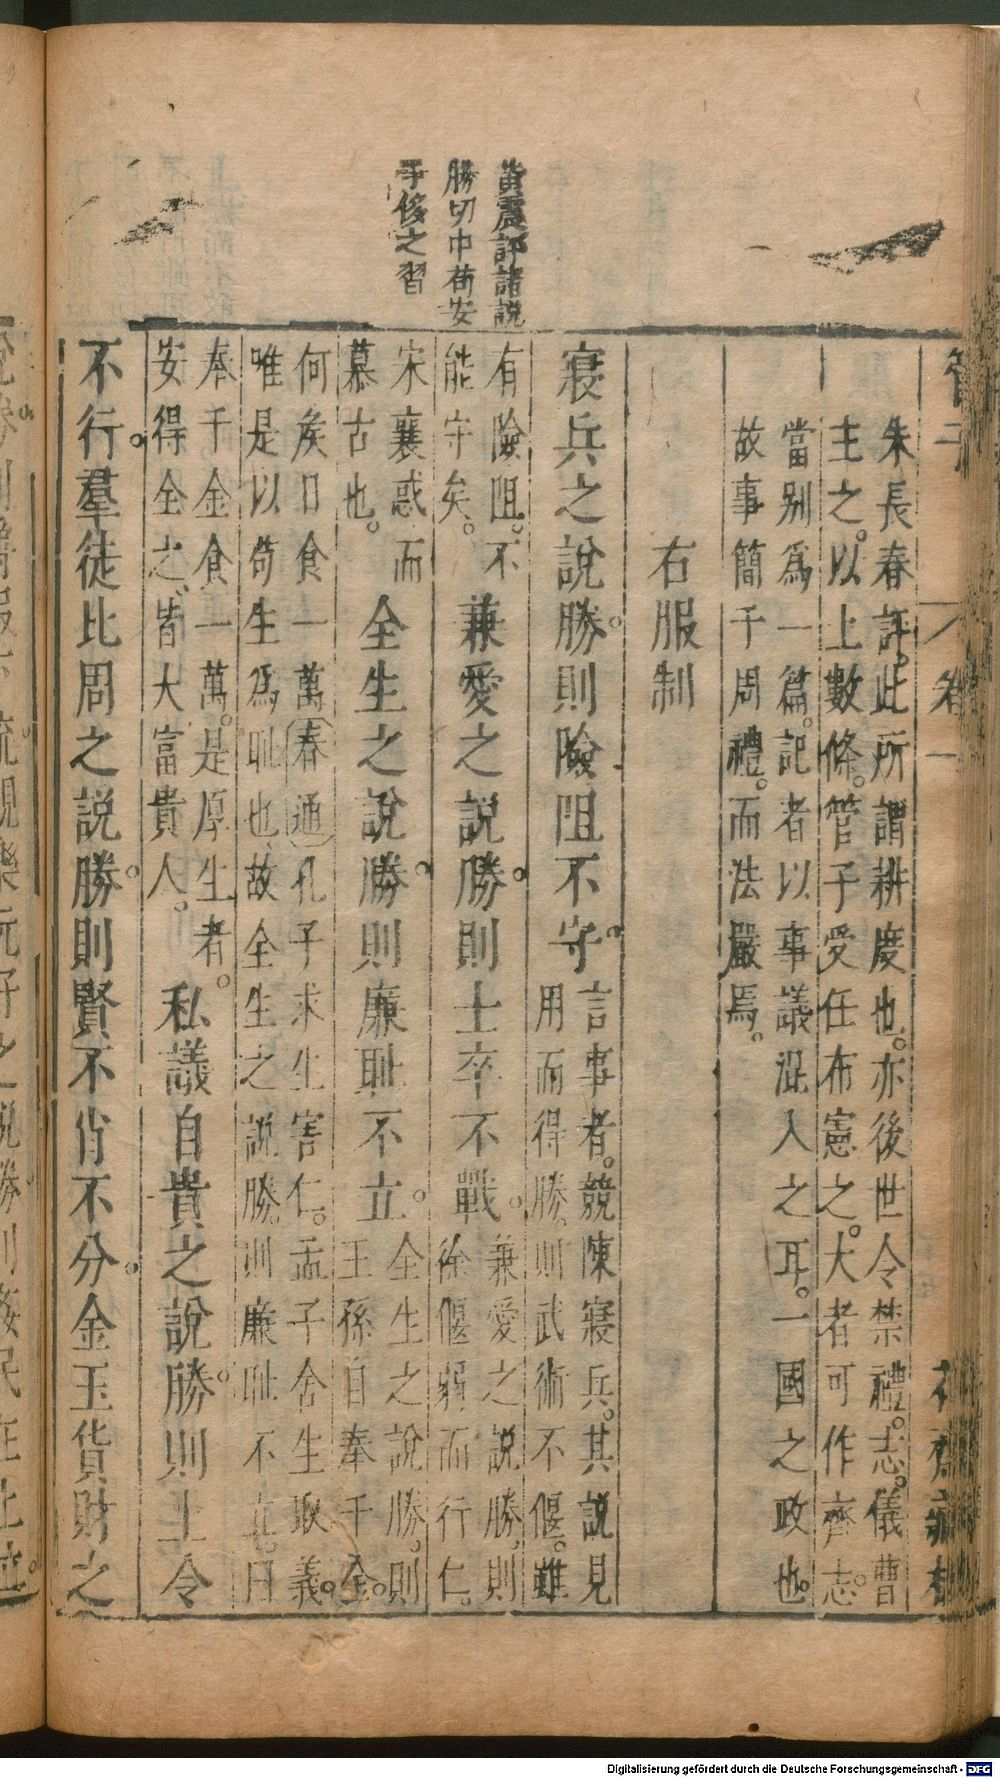 黃震評諸說
勝切中茍安
手侈之習
管子
卷一
朱長春評。此所謂耕度也。亦後世令禁禮。志。儀曹
主之。以上數條。管子受任布憲之。大者可作齊志。
當别爲一篇。記者以事議混入之耳。一國之政也。
故事簡于周禮。而法嚴焉。
右服制
寢兵之說勝。則險阻不守。
言事者。競陳寢兵。其說見
用而得勝。則武術不偃。雖
有險阻。不
能守矣。
兼愛之説勝。則士卒不戰。
兼愛之説勝。則
徐偃弱而行仁。
宋襄惑而
慕古也。
全生之説勝。則廉耻不立。
全生之說勝。則
王孫自奉千金。
何矦日食一萬春通孔子求生害仁。孟子舍生取義。
唯是以茍生爲耻也、故全生之説勝。則廉耻不立。曰
奉千金食一萬。是厚生者。
安得全之、皆大富貴人。
私議自貴之說勝。則上令
不行。羣徒比周之説勝。則賢不肖不分。金玉貨財之
Digitalisierung gefördert durch die Deutsche Forschungsgemeinschaft - DFG